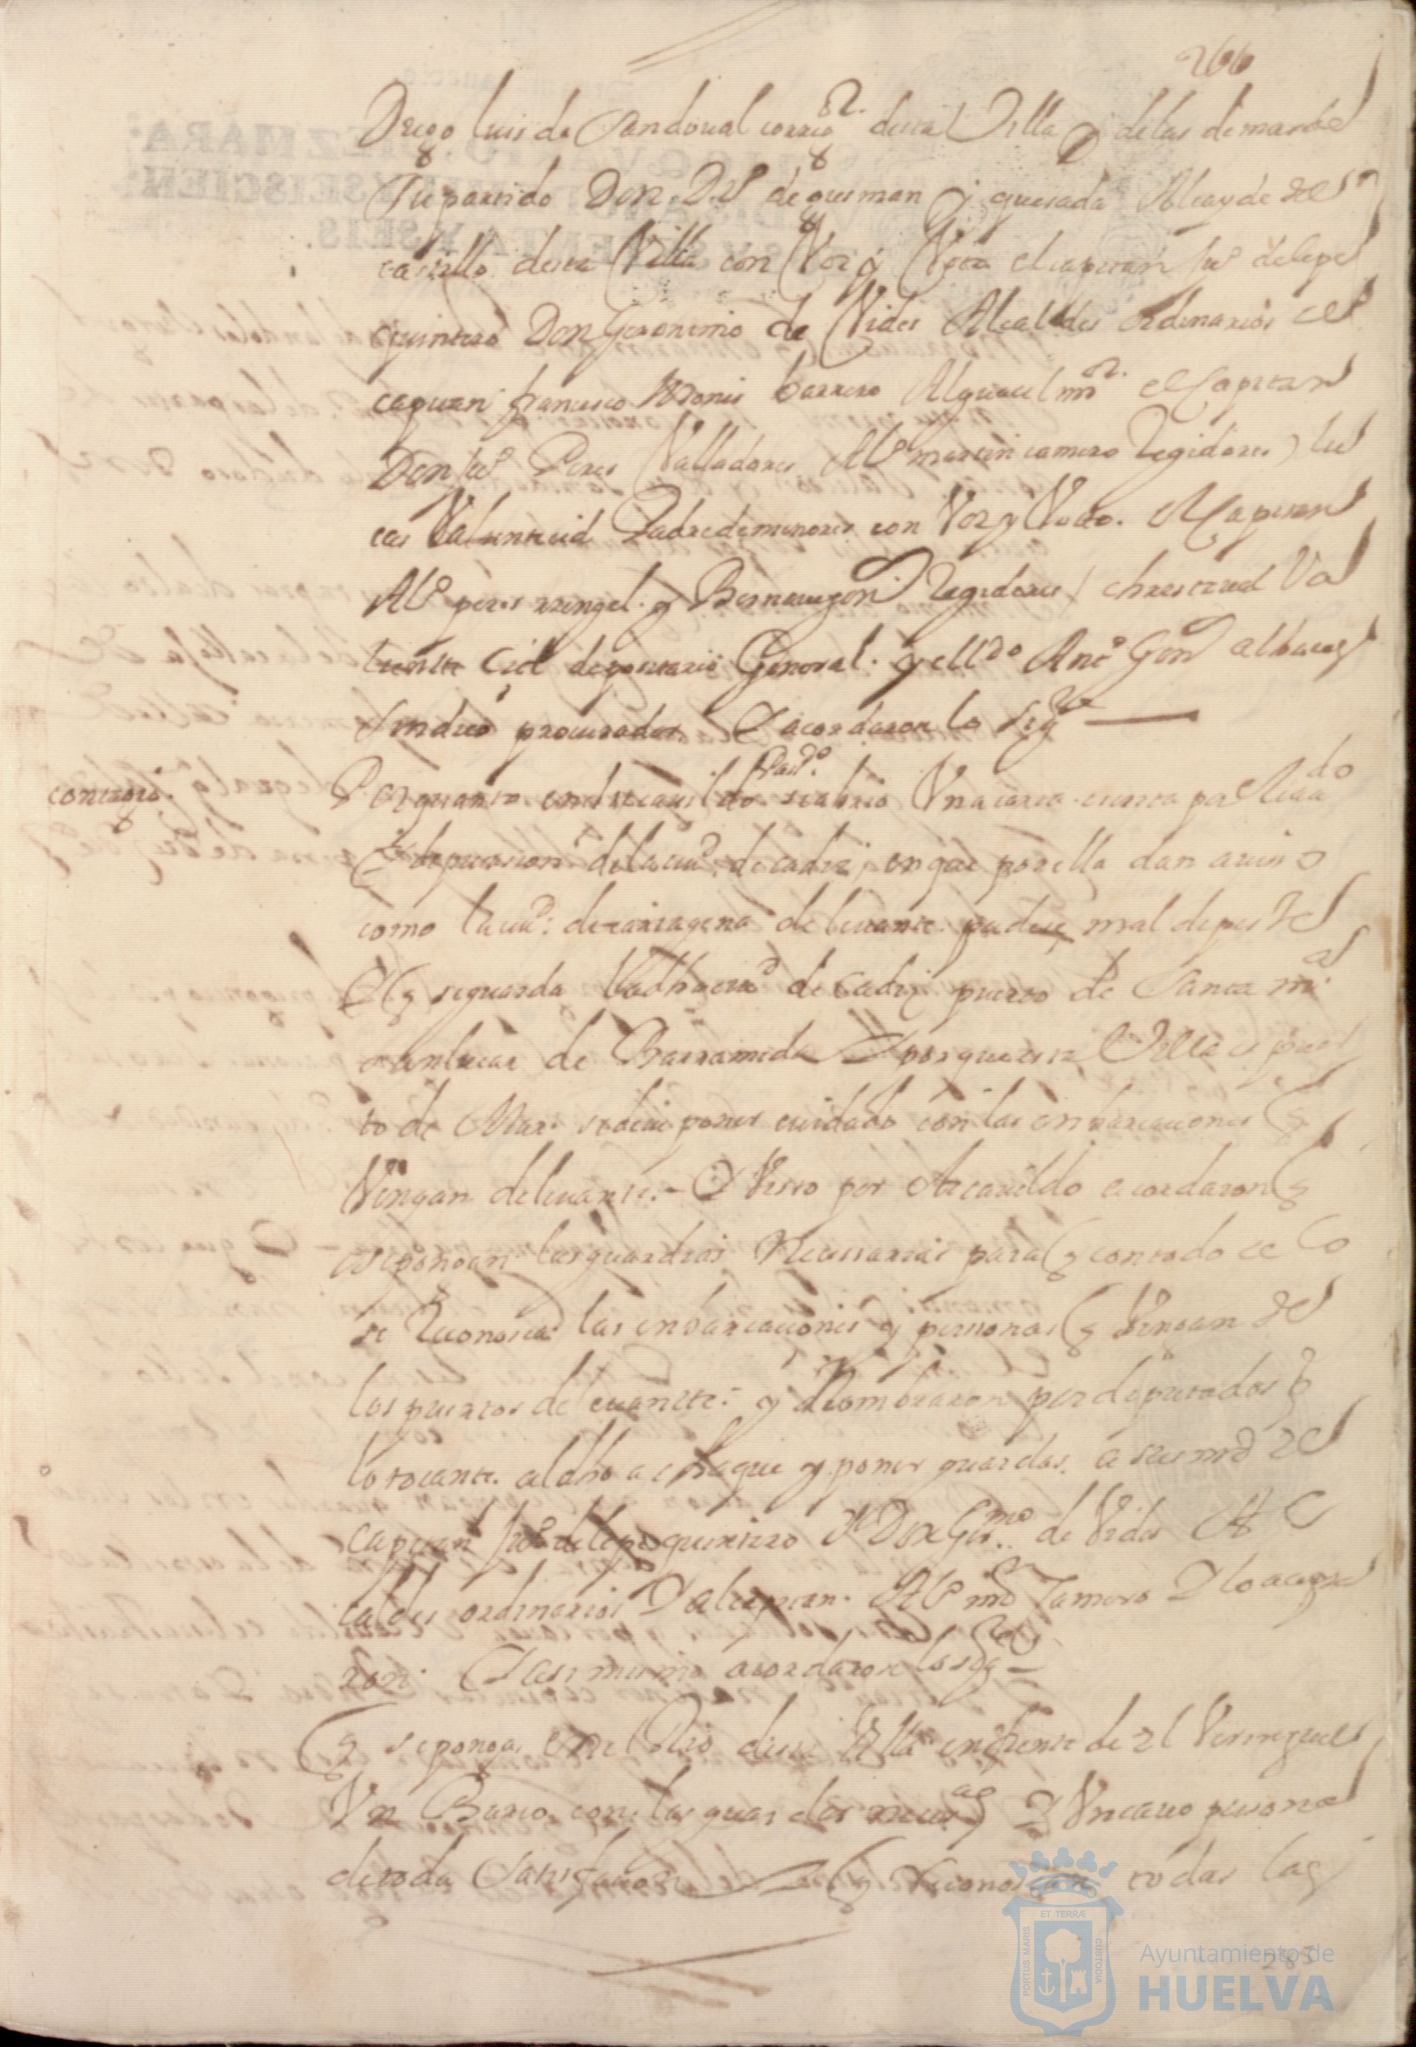 266
Diego luis de Sandoual corrigor. desta Villa y delas demas de
Su partido Don Di° de gusman y quesada Alcayde del
castillo desta Villa con Voz y Voto el capitan Ju° de lepe
quintero Don Geronimo de Vides Alcaldes ordinarios el
capitan francisco Monis barrero Alguacil mor. el Capitan
Don Ju° Peres Valladares Al° martin camero Regidores) lu
cas Valiente cid Padre de menores con Voz y Voto. el Capitan
Al° peres rengel. y Regidores / christoual Va
liente Cid depositario General. y el ldo Ant° Gon
Sindico procurador Y acordaron lo sigte
contagio.
Por quanto en este cauildo se abrio Vna carta escrita por el
Pasdo.
diputacion de la ciud. de cadiz, en que por ella dan auiso
como la ciud: de cartagena de leuante. padese mal de peste
Y q se guarda la dha ciud de Cadiz puerto de Santa ma
sanlucar de Barrameda Y porque esta Villa es puer
to de Mar. se deue poner cuidado con las enbarcaciones q
Vengan de leuante. - Y Visto por este cauildo acordaron q
se pongan las guardias Necessarias para q con todo
se Reconosca las enbarcaciones y personas q Vengan de
los puertos de leuante. y Nombraron por diputados p
lo tocante. al dho achaque y poner guardas. a sus mds el
Capitan Ju° de lepe quintero Y Don Germo. de Vides Al
caldes ordinarios Y al capitan. Al° mn Camero Y lo acepta
ron. Y asi mismo acordaron lo sigte
q se ponga en el Rio desta Villa enfrente de el
Vn Barco. con las guardas necesas Y Vn cauo persona
de toda Satisfacion q Reconoscan todas las
285
PORTUS MARIS ET TERRÆ CUSTODIA
Ayuntamiento de
HUELVA